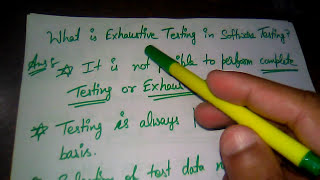 What is Exhaustive Testing in Software Testing?
Ans:- * It is not possible to perform complete
Testing or Exhaus
* Testing is always
basis.
of test data